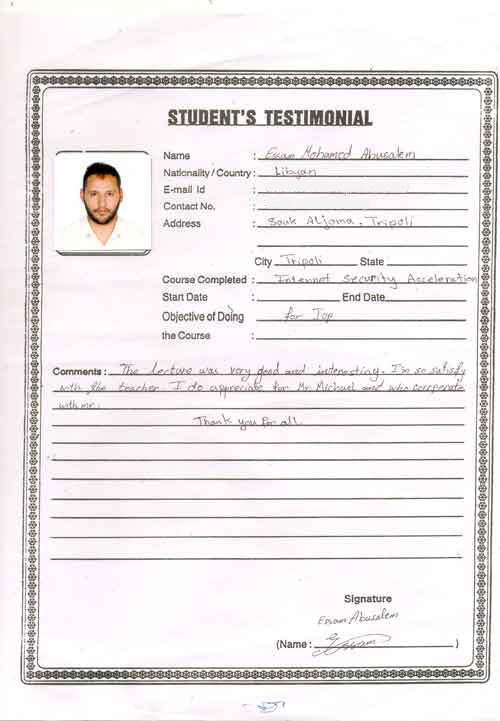 STUDENT'S TESTIMONIAL
Name : Essam Mohamed Abusalem
Nationality / Country : Libyan
E-mail Id :
Contact No. :
Address : Souk ALjoma, Tripoli
City Tripoli State
Course Completed : Internet Security Acceleration
Start Date : End Date
Objective of Doing : for Jop
the Course :
Comments : The lecture was very good and interesting. I'm so satisfy
with the teacher. I do appreciate for Mr. Michael and who cooperate
with me.
Thank you for all.
Signature
Essam Abusalem
(Name : )